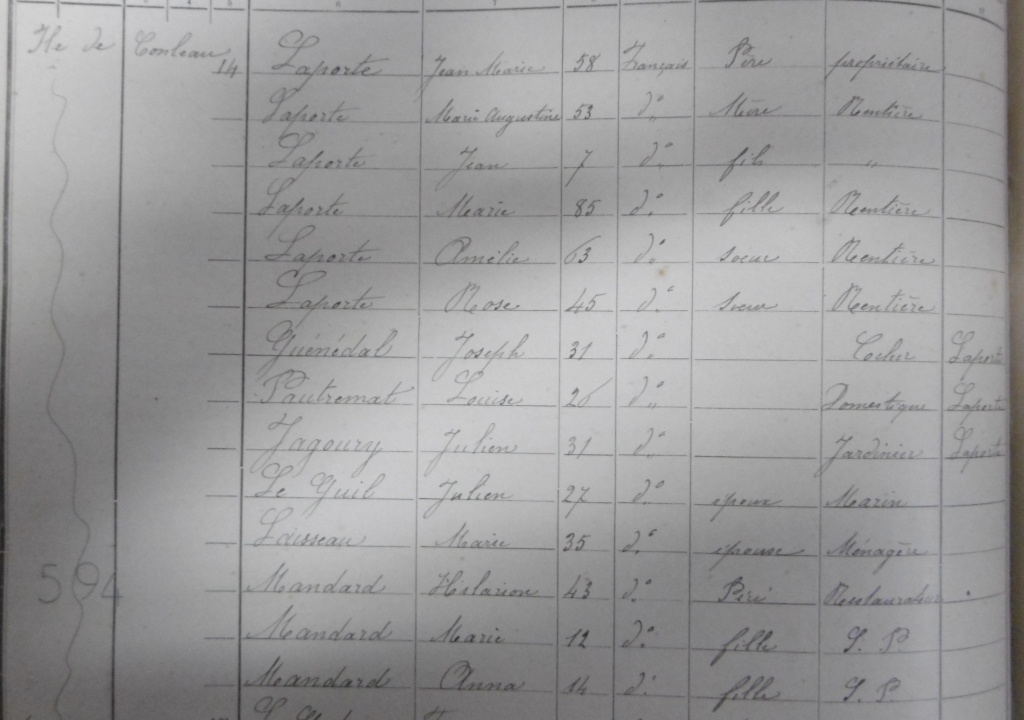 Ile de Conleau 14 Laporte Jean Marie 58 Français Père propriétaire
Laporte Marie Augustine 53 d° Mère Rentière
Laporte Jean 7 d° fils "
Laporte Marie 85 d° fille Rentière
Laporte Amélie 63 d° soeur Rentière
Laporte Rose 45 d° soeur Rentière
Guénédal Joseph 31 d° Cocher Laporte
Pautremat Louise 26 d° Domestique Laporte
Jagoury Julien 31 d° Jardinier Laporte
Le Guil Julien 27 d° époux Marin
Loisseau Marie 35 d° épouse Ménagère
594 Mandard Hilarion 43 d° Père Restaurateur
Mandard Marie 12 d° fille S. P.
Mandard Anna 14 d° fille S. P.